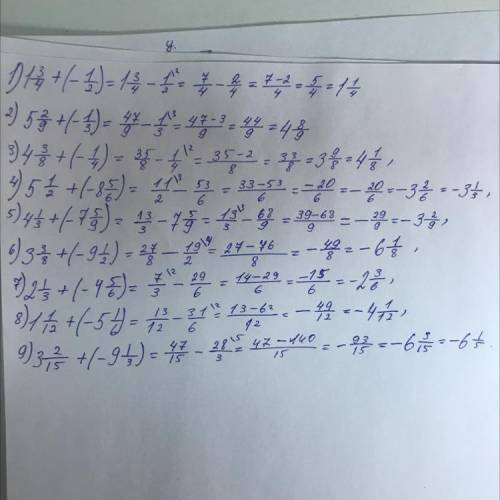 y.
1) 1 3/4 + (- 1/2) = 1 3/4 - 1/2 \2 = 7/4 - 2/4 = 7-2/4 = 5/4 = 1 1/4
2) 5 2/9 + (- 1/3) = 47/9 - 1/3 \3 = 47-3/9 = 44/9 = 4 8/9
3) 4 3/8 + (- 1/4) = 35/8 - 1/4 \2 = 35-2/8 = 33/8 = 3 9/8 = 4 1/8,
4) 5 1/2 + (-8 5/6) = 11/2 \3 - 53/6 = 33-53/6 = -20/6 = - 20/6 = -3 2/6 = -3 1/3,
5) 4 1/3 + (-7 5/9) = 13/3 - 7 5/9 = 13/3 \3 - 68/9 = 39-68/9 = - 29/9 = -3 2/9,
6) 3 3/8 + (-9 1/2) = 27/8 - 19/2 \4 = 27-76/8 = - 49/8 = -6 1/8,
7) 2 1/3 + (-4 5/6) = 7/3 \2 - 29/6 = 14-29/6 = -15/6 = -2 3/6
8) 1 1/12 + (-5 1/6) = 13/12 - 31/6 \2 = 13-62/12 = - 49/12 = -4 1/12,
9) 3 2/15 + (-9 1/3) = 47/15 - 28/3 \5 = 47-140/15 = - 93/15 = -6 3/15 = -6 1/5